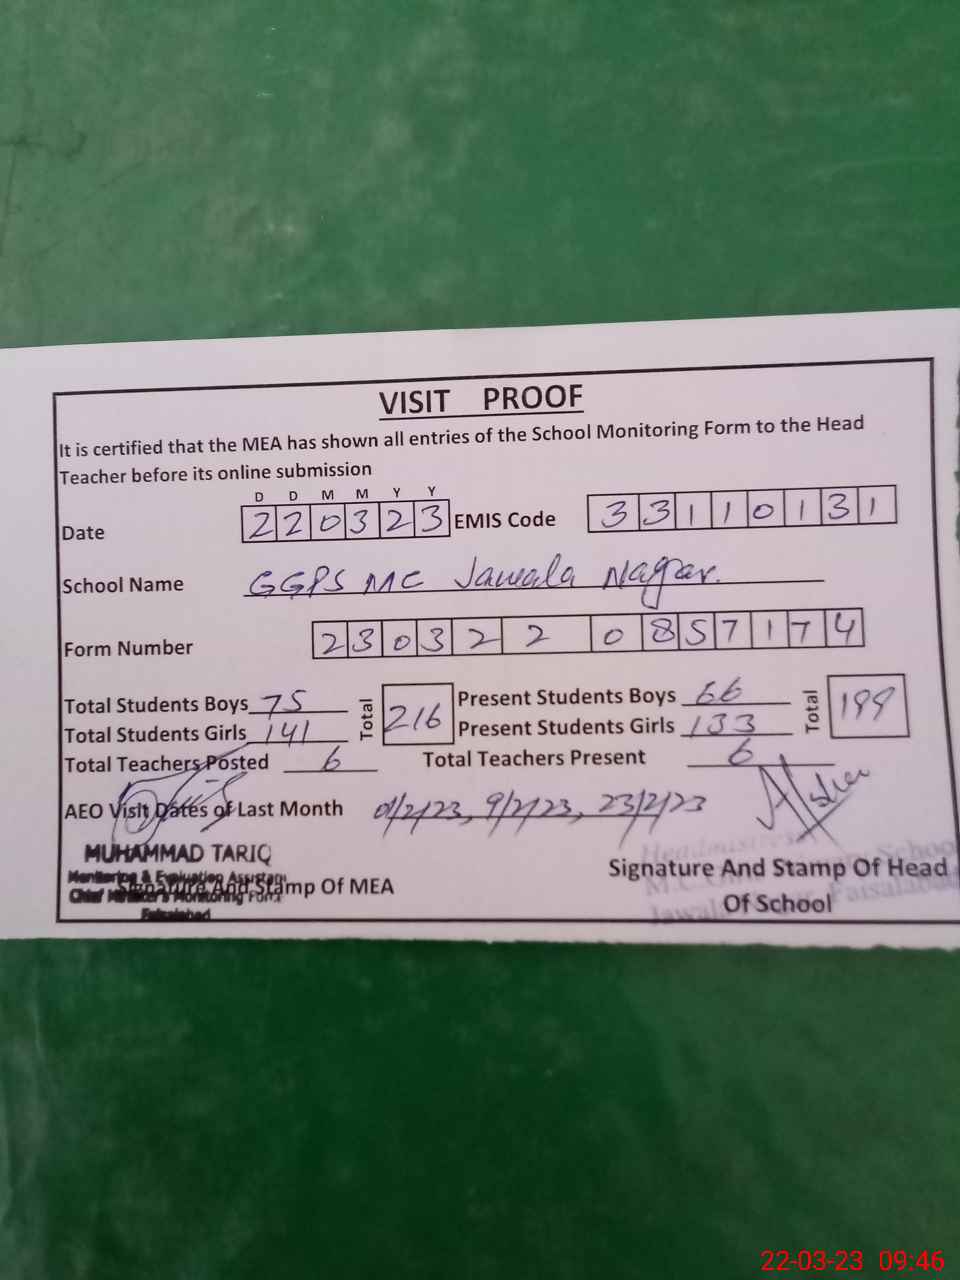 VISIT PROOF
It is certified that the MEA has shown all entries of the School Monitoring Form to the Head
Teacher before its online submission
D D M M Y Y
Date 2 2 0 3 2 3 EMIS Code 3 3 1 1 0 1 3 1
School Name GGPS MC Jawala Nagar.
Form Number 2 3 0 3 2 2 0 8 5 7 1 7 4
Total Students Boys 75 Total 216 Present Students Boys 66 Total 199
Total Students Girls 141 Present Students Girls 133
Total Teachers Posted 6 Total Teachers Present 6
AEO Visit Dates of Last Month 01/2/23, 9/2/23, 23/2/23
MUHAMMAD TARIQ
Monitoring & Evaluation Assistant
Chief Minister's Monitoring Force
Faisalabad
Signature And Stamp Of MEA
Headmistress
M.C. School
Jawala Nagar, Faisalabad
Signature And Stamp Of Head
Of School
22-03-23 09:46